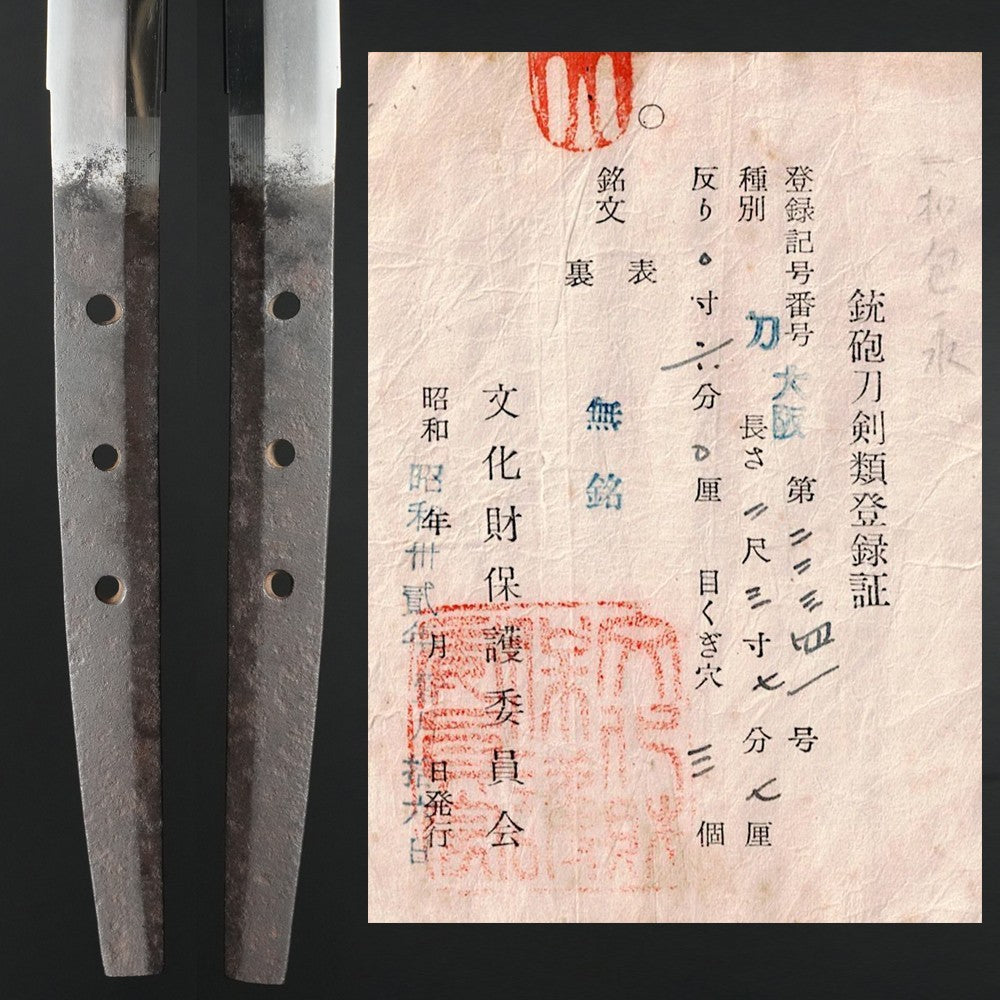 包永
銃砲刀剣類登録証
登録記号番号 大阪 第二二三四一号
種別 刀 長さ 二尺三寸七分七厘
反り 〇寸六分〇厘 目くぎ穴 三個
銘文
表
裏
無銘
文化財保護委員会
昭和 年 月 日発行
昭和卅貳年 拾六日